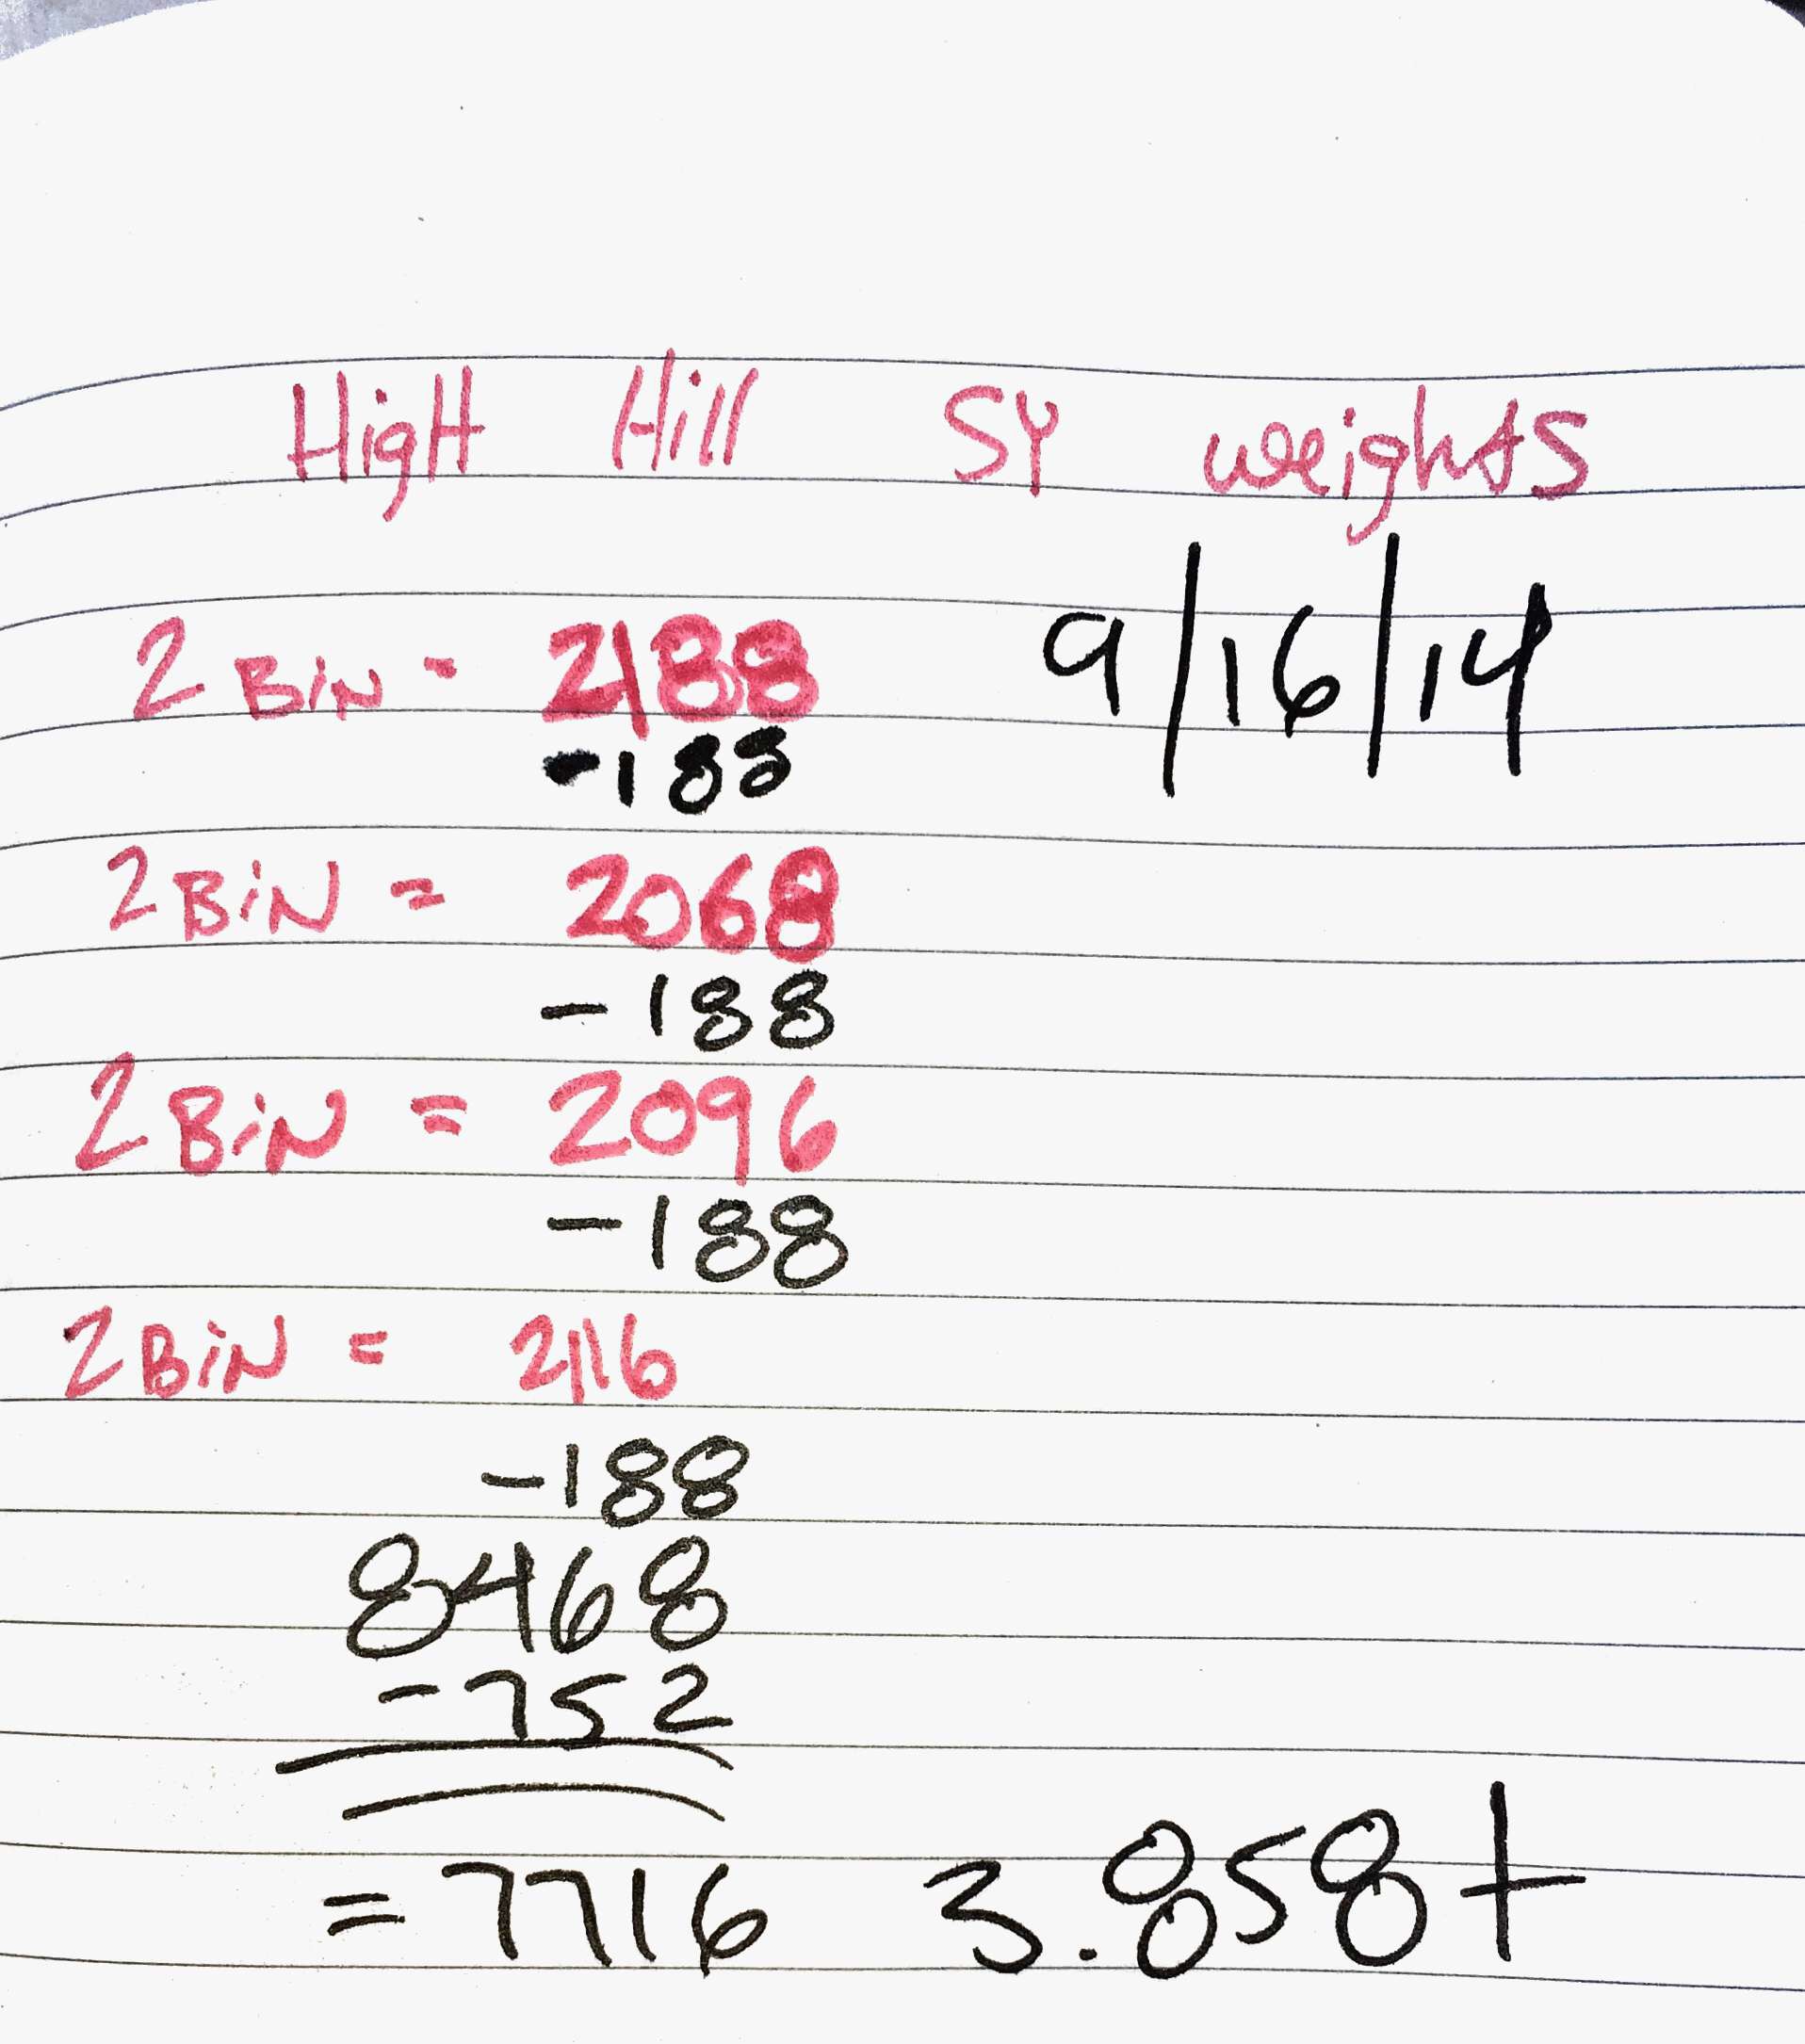 HigH Hill SY weights
2 BiN = 2188 9/16/14
-188
2 BiN = 2068
-188
2 BiN = 2096
-188
2 BiN = 2116
-188
8468
-752
= 7716 3.858t